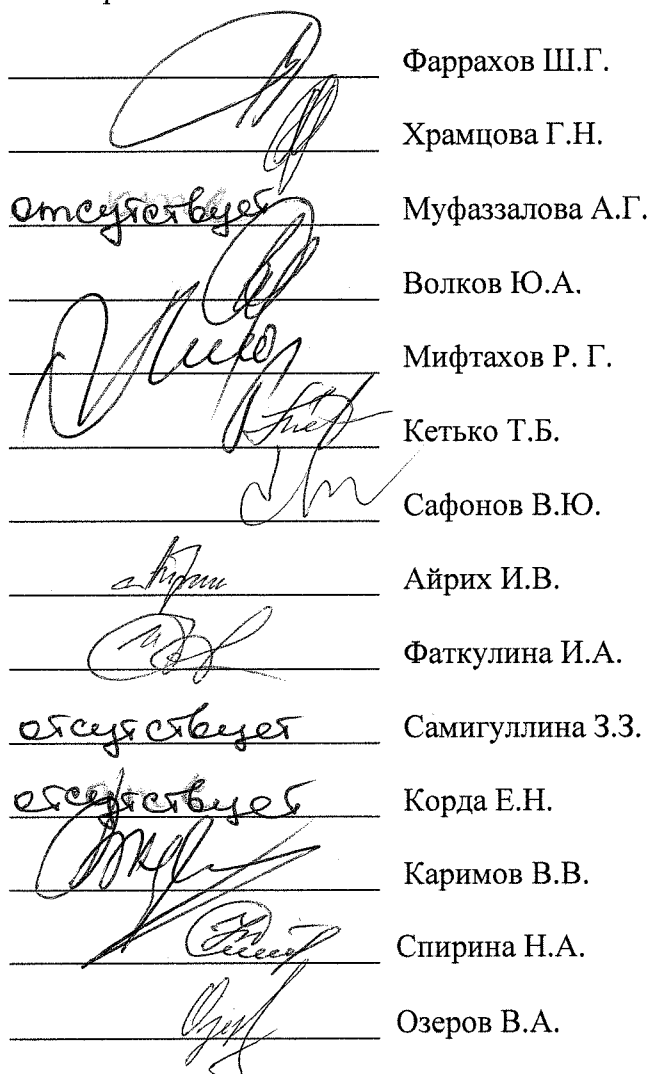 Фаррахов Ш.Г.
Храмцова Г.Н.
отсутствует Муфаззалова А.Г.
Волков Ю.А.
Мифтахов Р. Г.
Кетько Т.Б.
Сафонов В.Ю.
Айрих И.В.
Фаткулина И.А.
отсутствует Самигуллина З.З.
отсутствует Корда Е.Н.
Каримов В.В.
Спирина Н.А.
Озеров В.А.